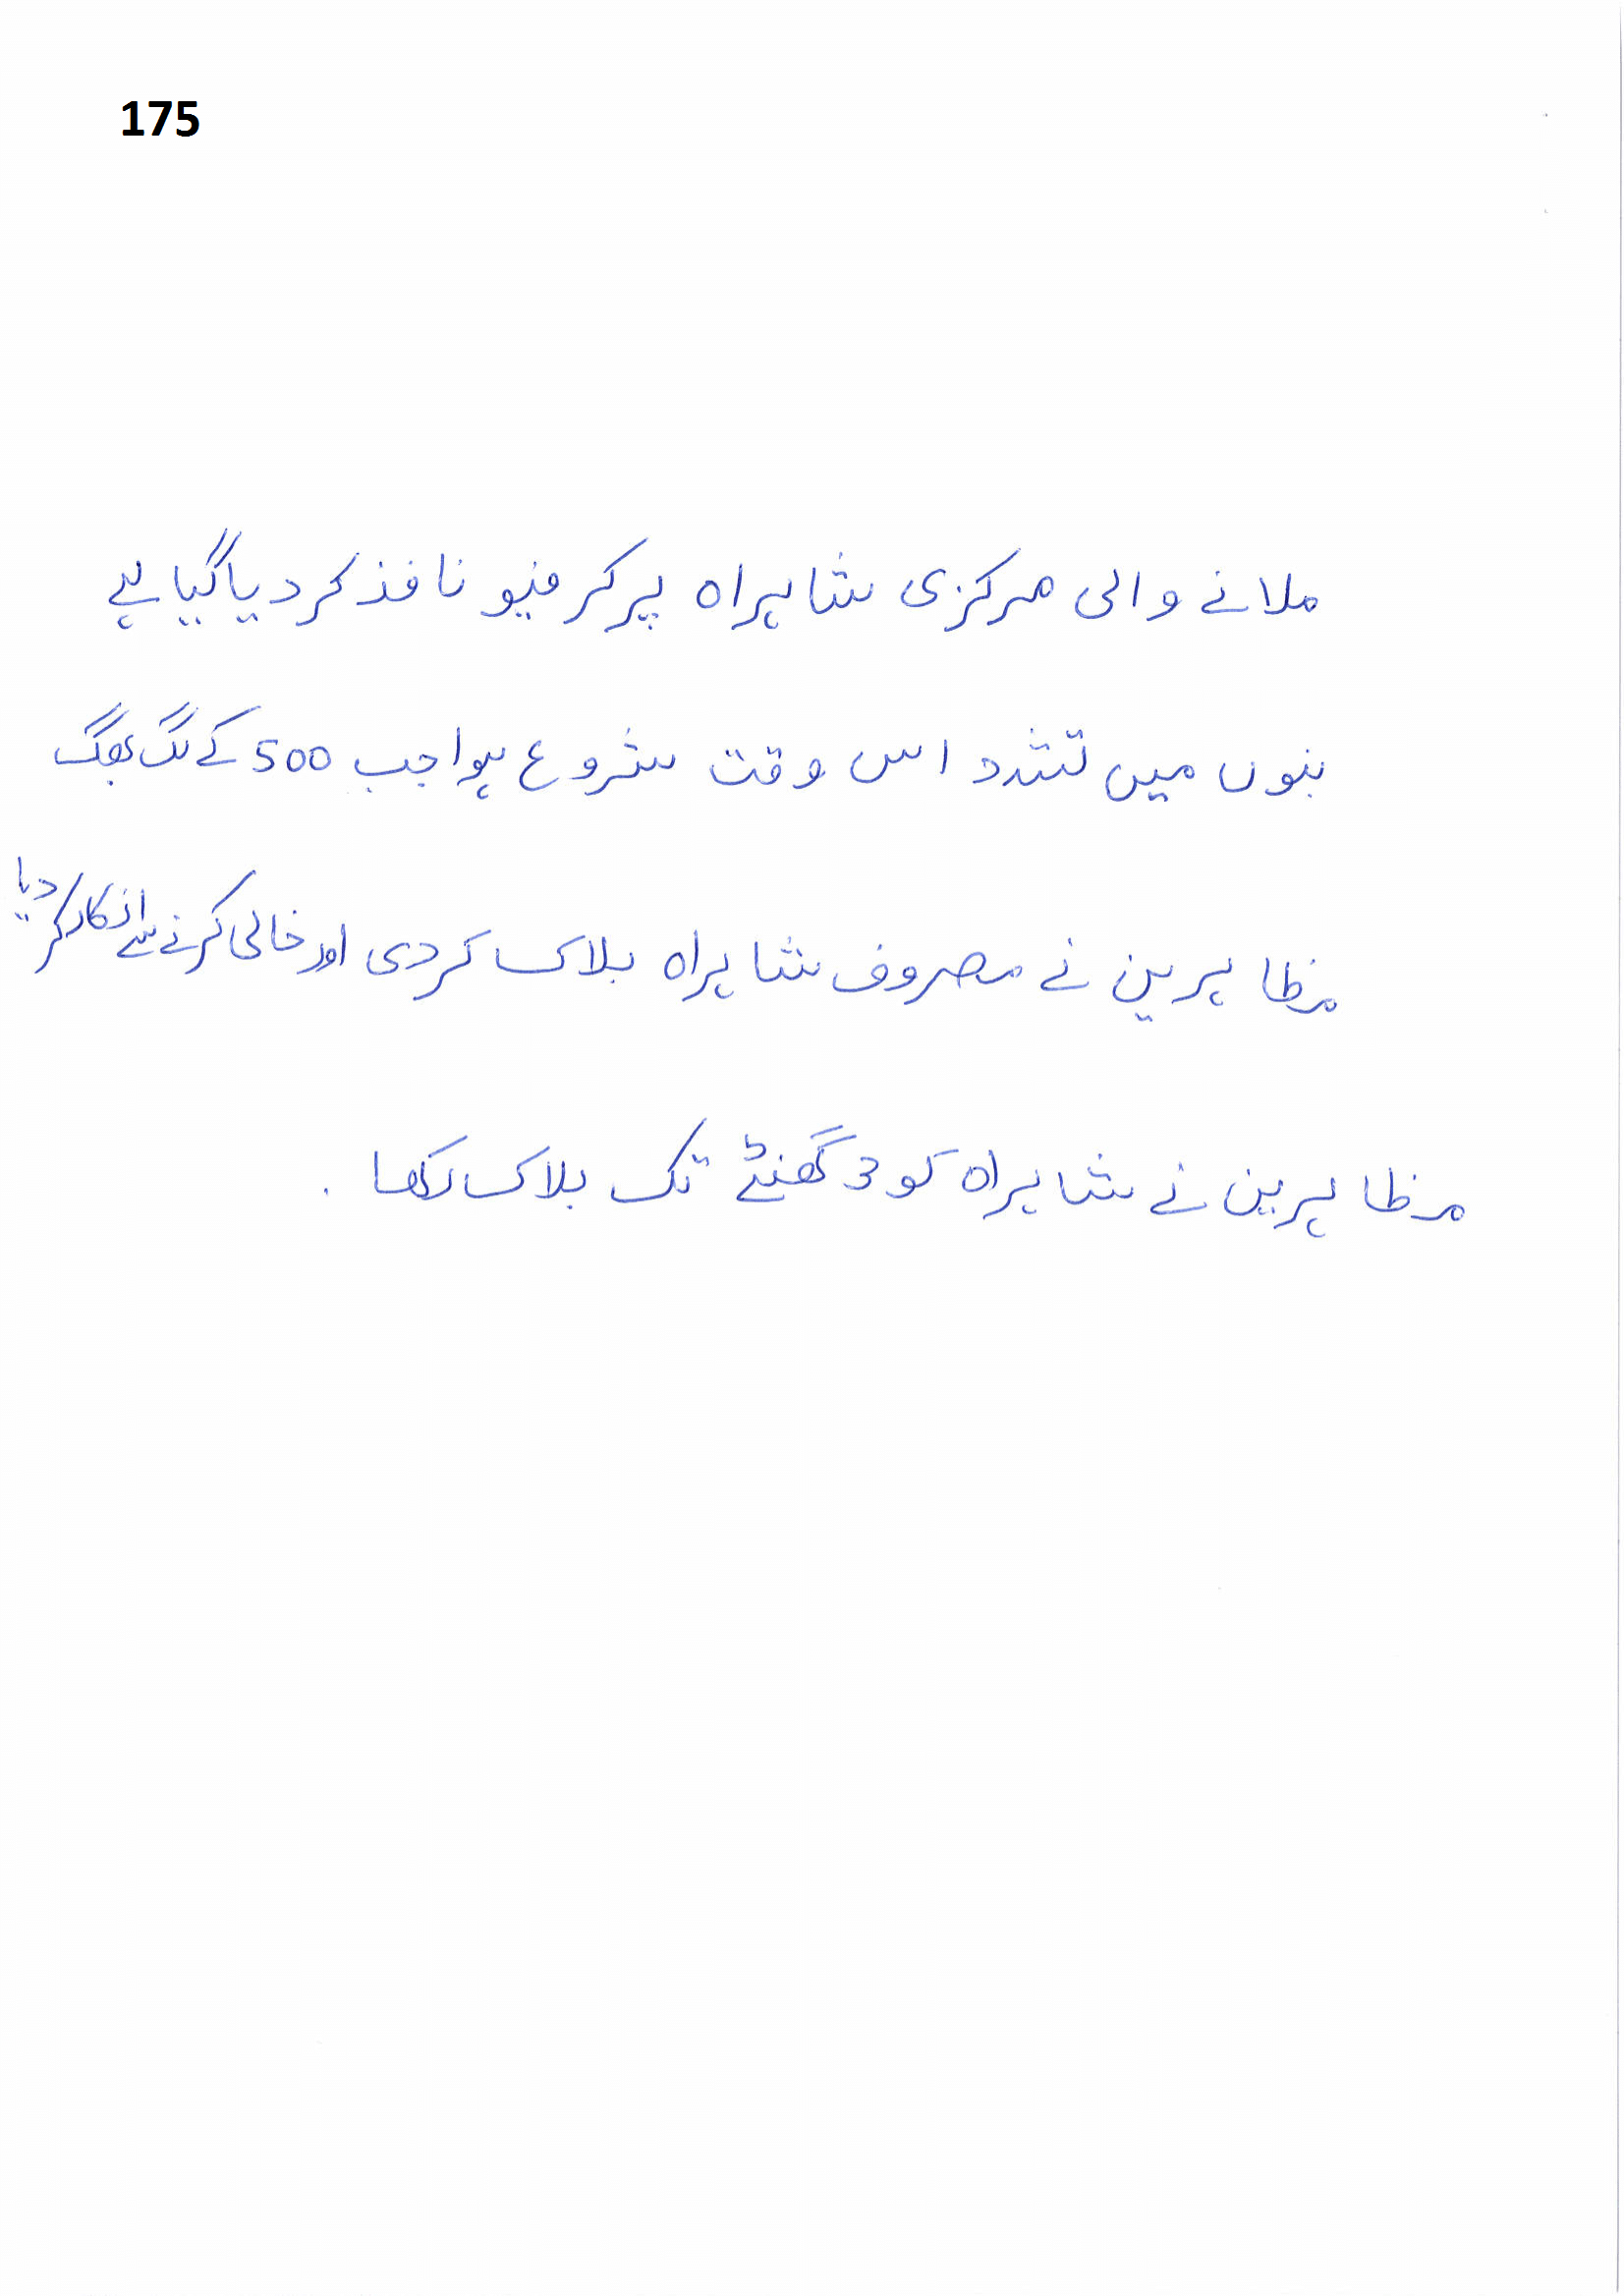 175
ملانے والی مرکزی شاہراہ پر کرفیو نافذ کر دیا گیا ہے
بنوں میں تشدد اس وقت شروع ہوا جب 500 کے لگ بھگ
مظاہرین نے مصروف شاہراہ بلاک کر دی اور خالی کرنے سے انکار کر دیا
مظاہرین نے شاہراہ کو 3 گھنٹے تک بلاک رکھا .